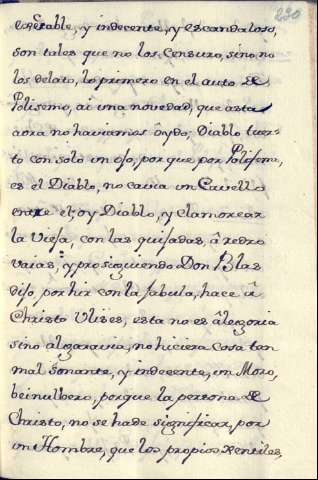 230
table, y indecente, y escandaloso,
son tales que no los censuro, sino, no
los delato, lo primero en el auto de
Polisemo, ai una novedad, que asta
aora no haviamos oydo, Diablo tuer-
to con solo un ojo, por que por Polifemo,
es el Diablo, no cavia un Cavello
entre el, oy Diablo, y clamorear
la Vieja, con las quijadas, â redro
vaias, y prosiguiendo Don Blas
dijo por hir con la fabula, hace â
Christo Ulises, esta no es âlegoria
sino algaravia, no hiciera cosa tan
mal sonante, y indecente, un Moro,
porque la persona de
Christo, no se ha de significar, por
un Hombre, que los propios Xentiles,